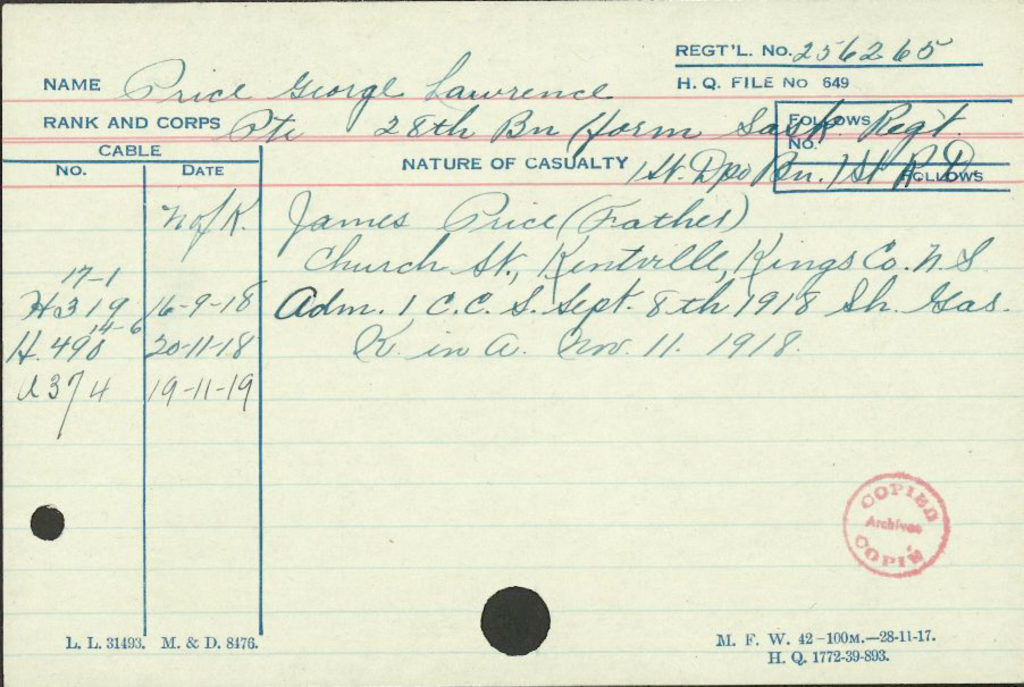 REGT'L. No. 256265
NAME Price George Lawrence
H. Q. FILE No 649
RANK AND CORPS Pte 28th Bn (form Sask Regt.
FOLLOWS
No.
CABLE
NATURE OF CASUALTY 1st. Dpo Bn. 1st R D.
FOLLOWS
No. DATE
N of K. James Price (Father)
Church St., Kentville, Kings Co. N.S
17-1
H319 16-9-18 Adm. 1 C.C.S. Sept. 8th 1918 Sh. Gas.
14-6
H.490 20-11-18 K. in A. Nov. 11. 1918.
A374 19-11-19
COPIED
Archives
COPIÉ
L. L. 31493. M. & D. 8476.
M. F. W. 42-100M.-28-11-17.
H. Q. 1772-39-893.